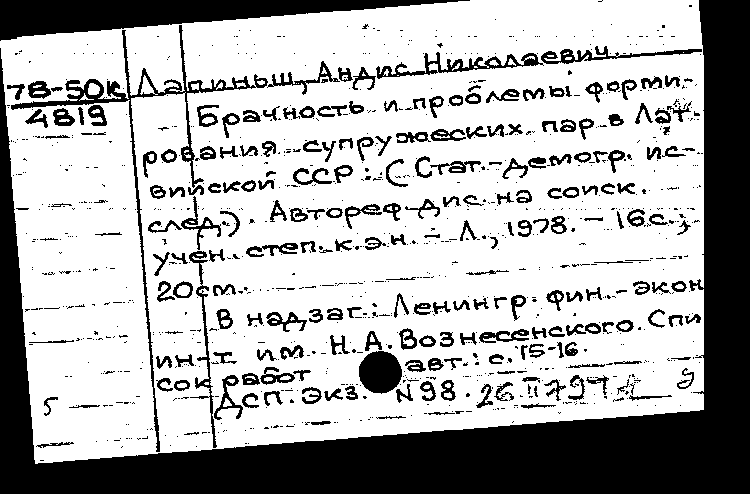 78-50к
4819
Лапиньш, Андис Николаевич.
Брачность и проблемы форми-
рования супружеских пар в Лат-
вийской ССР: (Стат.-демогр. ис-
след.). Автореф. дис. на соиск.
учен. степ. к.э.н. - Л., 1978. - 16с.;
20см.
В надзаг.: Ленингр. фин.-экон
ин-т им. Н.А. Вознесенского. Спи
сок работ авт.: с. 15-16.
ДСП. Экз. N 98. 26 II 79
5